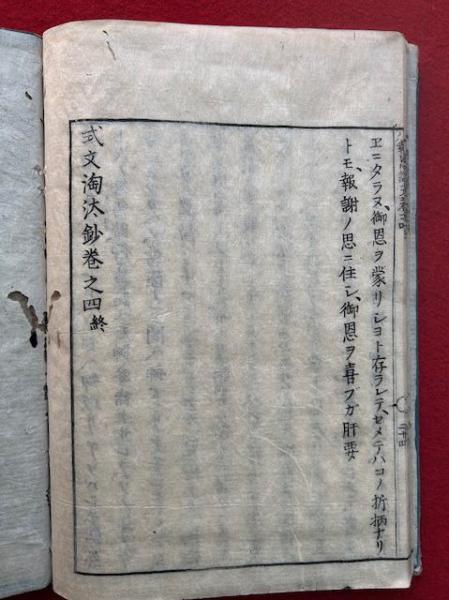 ヱニタラヌ、御恩ヲ蒙リシヨト存ラレテ、セメテハコノ折柄ナリ
トモ、報謝ノ思ニ住シ、御恩ヲ喜ブガ肝要
式文淘汰鈔巻之四終